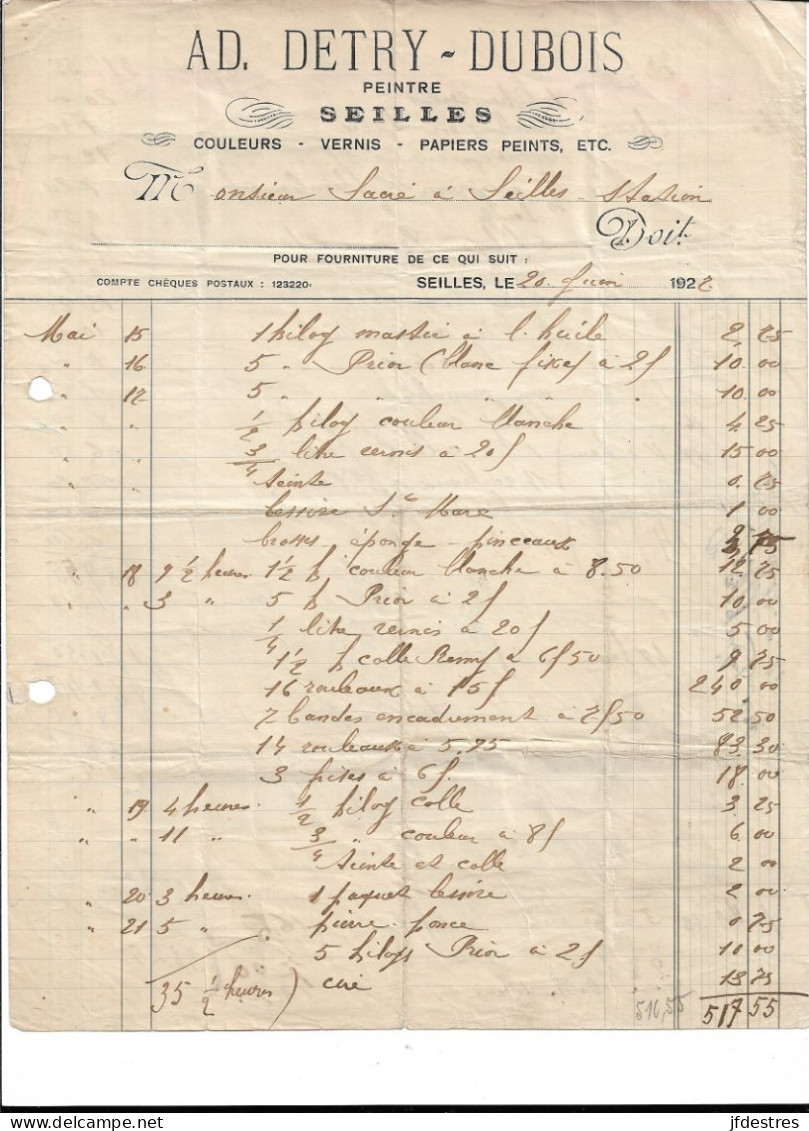 AD. DETRY - DUBOIS
PEINTRE
SEILLES
COULEURS - VERNIS - PAPIERS PEINTS, ETC.
Monsieur Sacré à Seilles - Station
Doit
POUR FOURNITURE DE CE QUI SUIT :
COMPTE CHÈQUES POSTAUX : 123220
SEILLES, LE 20 Juin 1922
Mai 15 1 kilog mastic à l'huile 2 25
" 16 5 " Prior (blanc fixe) à 2f 10.00
" 17 5 " " " " 10.00
" " 1/2 kilog couleur blanche 4.25
" " 3/4 litre vernis à 20f 15 00
" " teinte 0.75
lessive Ste Marc 1 00
brosses éponge - pinceaux 75
" 18 9 1/2 heures 1 1/2 k couleur blanche à 8.50 12 75
" " 3 " 5 k Prior à 2f 10.00
1/4 litre vernis à 20f 5 00
1 1/2 k colle Remy à 6f50 9 75
16 rouleaux à 15f 240.00
7 bandes encadrement à 7f50 52 50
14 rouleaux à 5.95 83.30
3 frises à 6f. 18 00
" 19 4 heures. 1/2 kilog colle 3.25
" " 11 " 3/4 " couleur à 8f 6.00
teinte et colle 2 00
" 20 3 heures 1 paquet lessive 2 00
" 21 5 " pierre ponce 0 75
5 kilogs Prior à 2f 10 00
35 1/2 heures) ciré 13 75
516,55 517 55
jfdestres